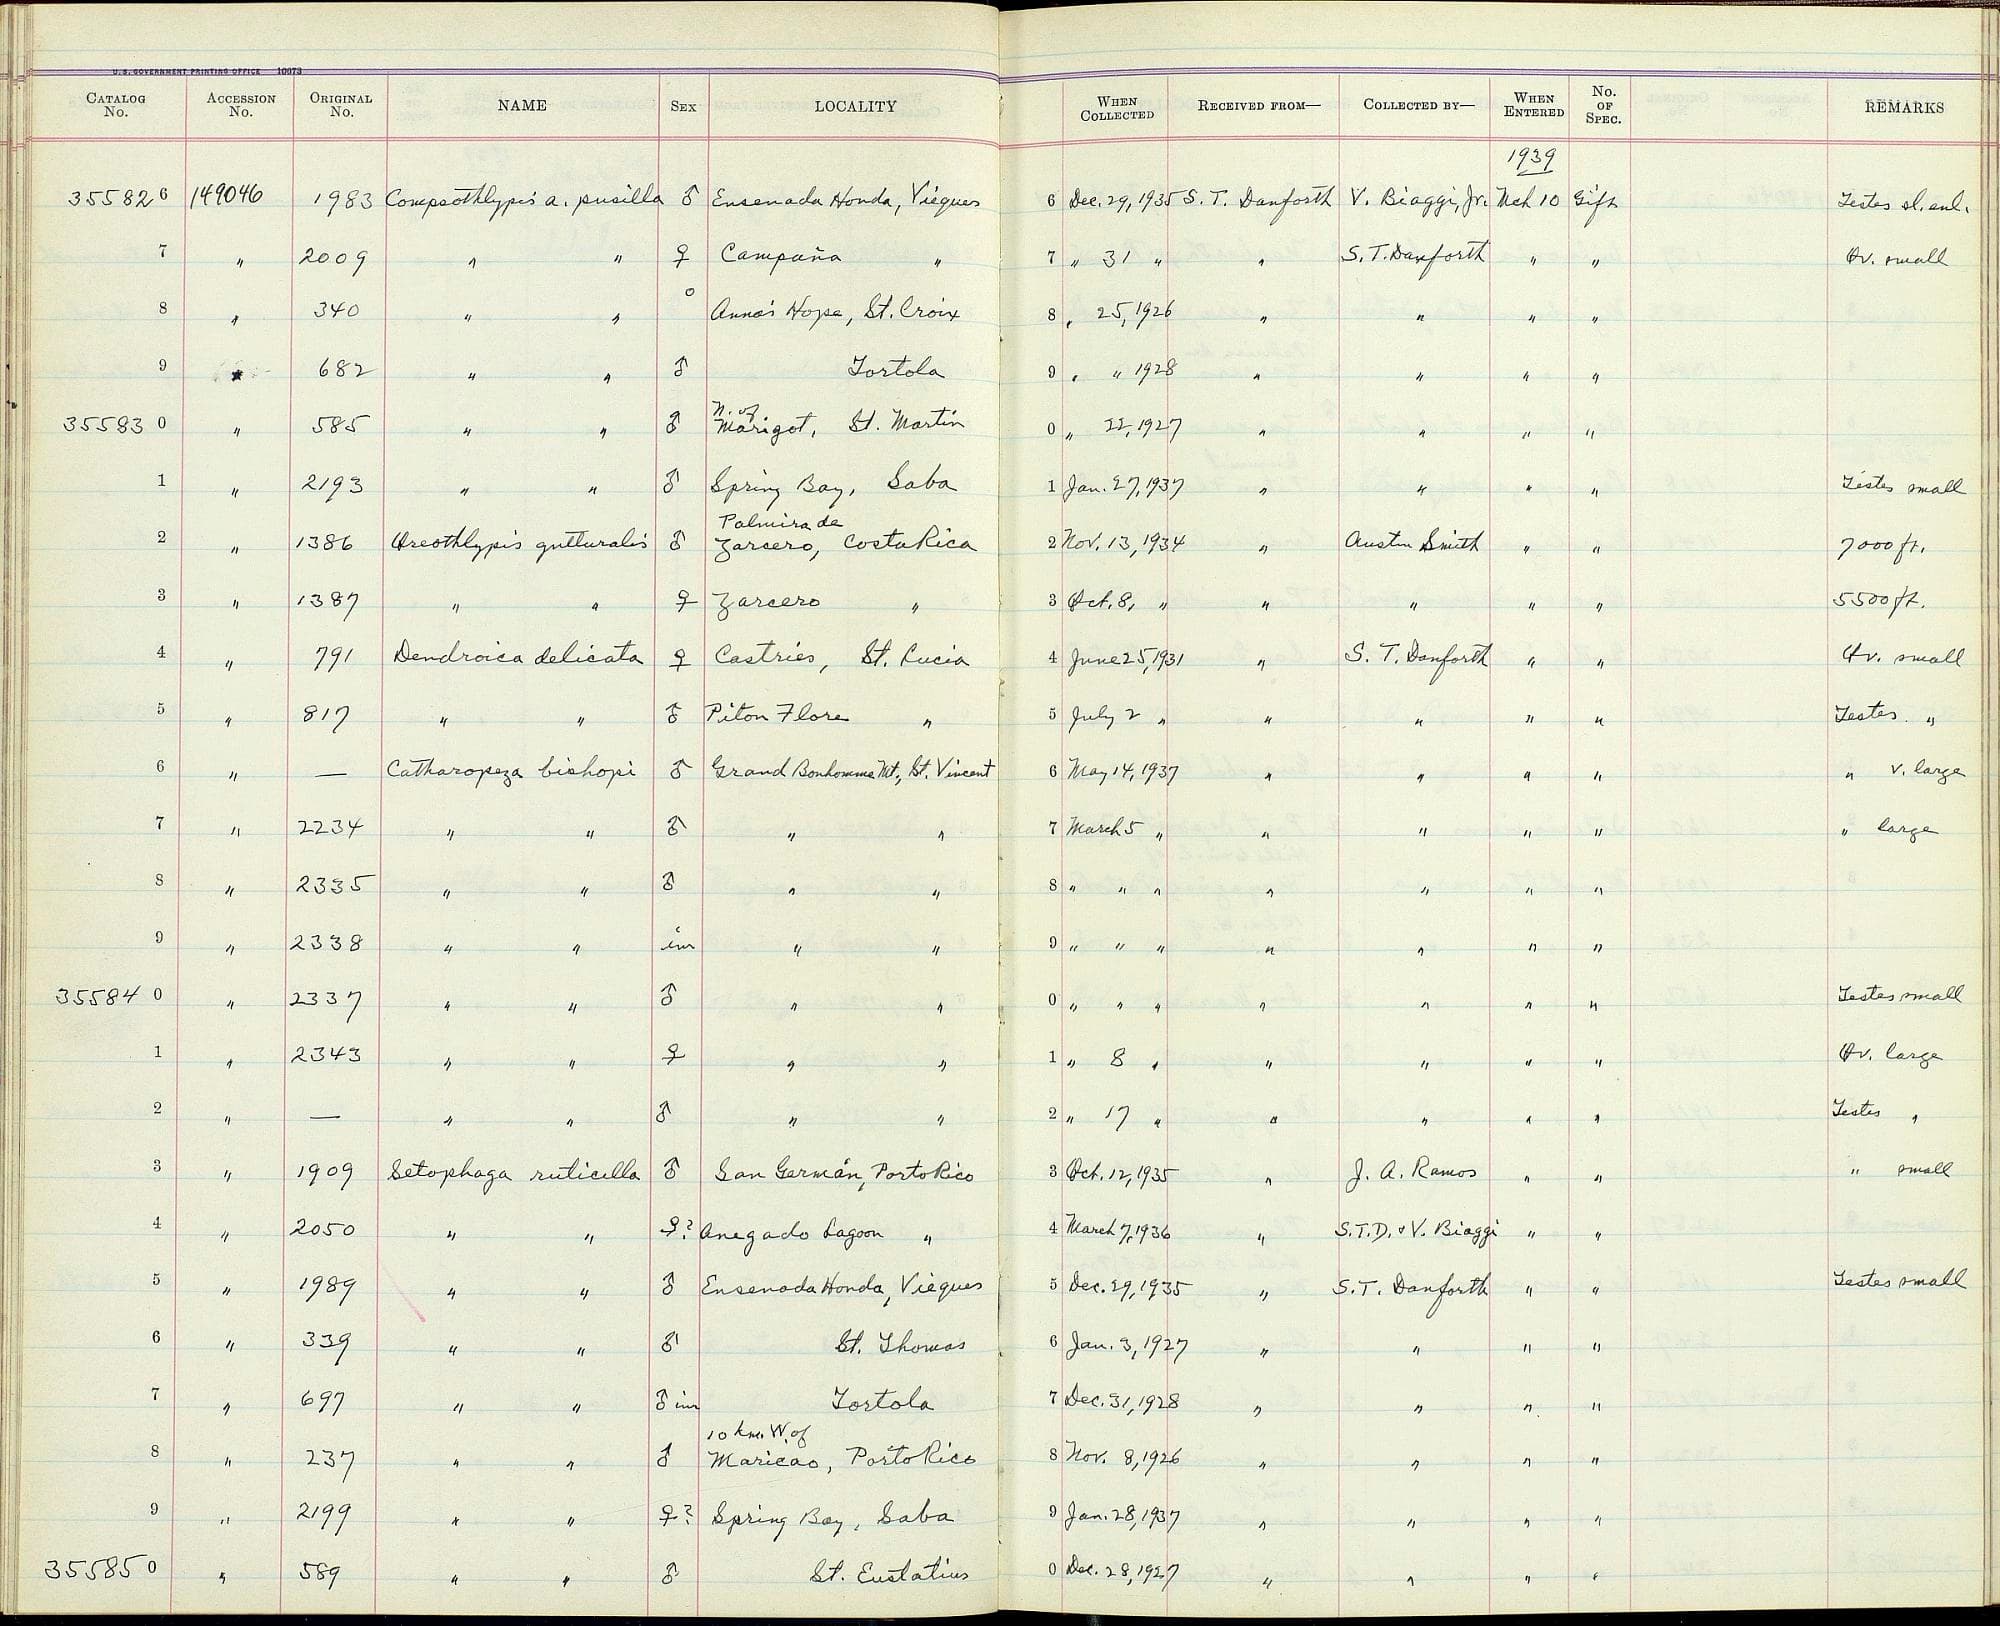 U.S. GOVERNMENT PRINTING OFFICE 10673
CATALOG No. ACCESSION No. ORIGINAL No. NAME SEX LOCALITY WHEN COLLECTED RECEIVED FROM— COLLECTED BY— WHEN ENTERED No. OF SPEC. REMARKS
1939
355826 149046 1983 Compsothlypis a. pusilla ♂ Ensenada Honda, Vieques 6 Dec. 29, 1935 S. T. Danforth V. Biaggi, Jr. Mch 10 Gift Testes sl. enl.
7 " 2009 " " ♀ Campaña " 7 " 31 " " S. T. Danforth " " Ov. small
8 " 340 " " o Anna's Hope, St. Croix 8 " 25, 1926 " " " "
9 " 682 " " ♂ Tortola 9 " " 1928 " " " "
355830 " 585 " " ♂ N. of Marigot, St. Martin 0 " 22, 1927 " " " "
1 " 2193 " " ♂ Spring Bay, Saba 1 Jan. 27, 1937 " " " " Testes small
Palmira de
2 " 1386 Oreothlypis gutturalis ♂ Zarcero, Costa Rica 2 Nov. 13, 1934 " Austin Smith " " 7000 ft.
3 " 1387 " " ♀ Zarcero " 3 Oct. 8, " " " " " 5500 ft.
4 " 791 Dendroica delicata ♀ Castries, St. Lucia 4 June 25, 1931 " S. T. Danforth " " Ov. small
5 " 817 " " ♂ Piton Flore " 5 July 2 " " " " " Testes "
6 " — Catharopeza bishopi ♂ Grand Bonhomme Mt., St. Vincent 6 May 14, 1937 " " " " " v. large
7 " 2234 " " ♂ " " 7 March 5 " " " " " " large
8 " 2335 " " ♂ " " 8 " " " " " " "
9 " 2338 " " im " " 9 " " " " " " "
355840 " 2337 " " ♂ " " 0 " " " " " " " Testes small
1 " 2343 " " ♀ " " 1 " 8 " " " " " Ov. large
2 " — " " ♂ " " 2 " 17 " " " " " Testes "
3 " 1909 Setophaga ruticilla ♂ San Germán, Porto Rico 3 Oct. 12, 1935 " J. A. Ramos " " " small
4 " 2050 " " ♀? Anegado Lagoon " 4 March 7, 1936 " S.T.D. & V. Biaggi " "
5 " 1989 " " ♂ Ensenada Honda, Vieques 5 Dec. 29, 1935 " S. T. Danforth " " Testes small
6 " 339 " " ♂ St. Thomas 6 Jan. 3, 1927 " " " "
7 " 697 " " ♂ im Tortola 7 Dec. 31, 1928 " " " "
10 km. W. of
8 " 237 " " ♂ Maricao, Porto Rico 8 Nov. 8, 1926 " " " "
9 " 2199 " " ♀? Spring Bay, Saba 9 Jan. 28, 1937 " " " "
355850 " 589 " " ♂ St. Eustatius 0 Dec. 28, 1927 " " " "